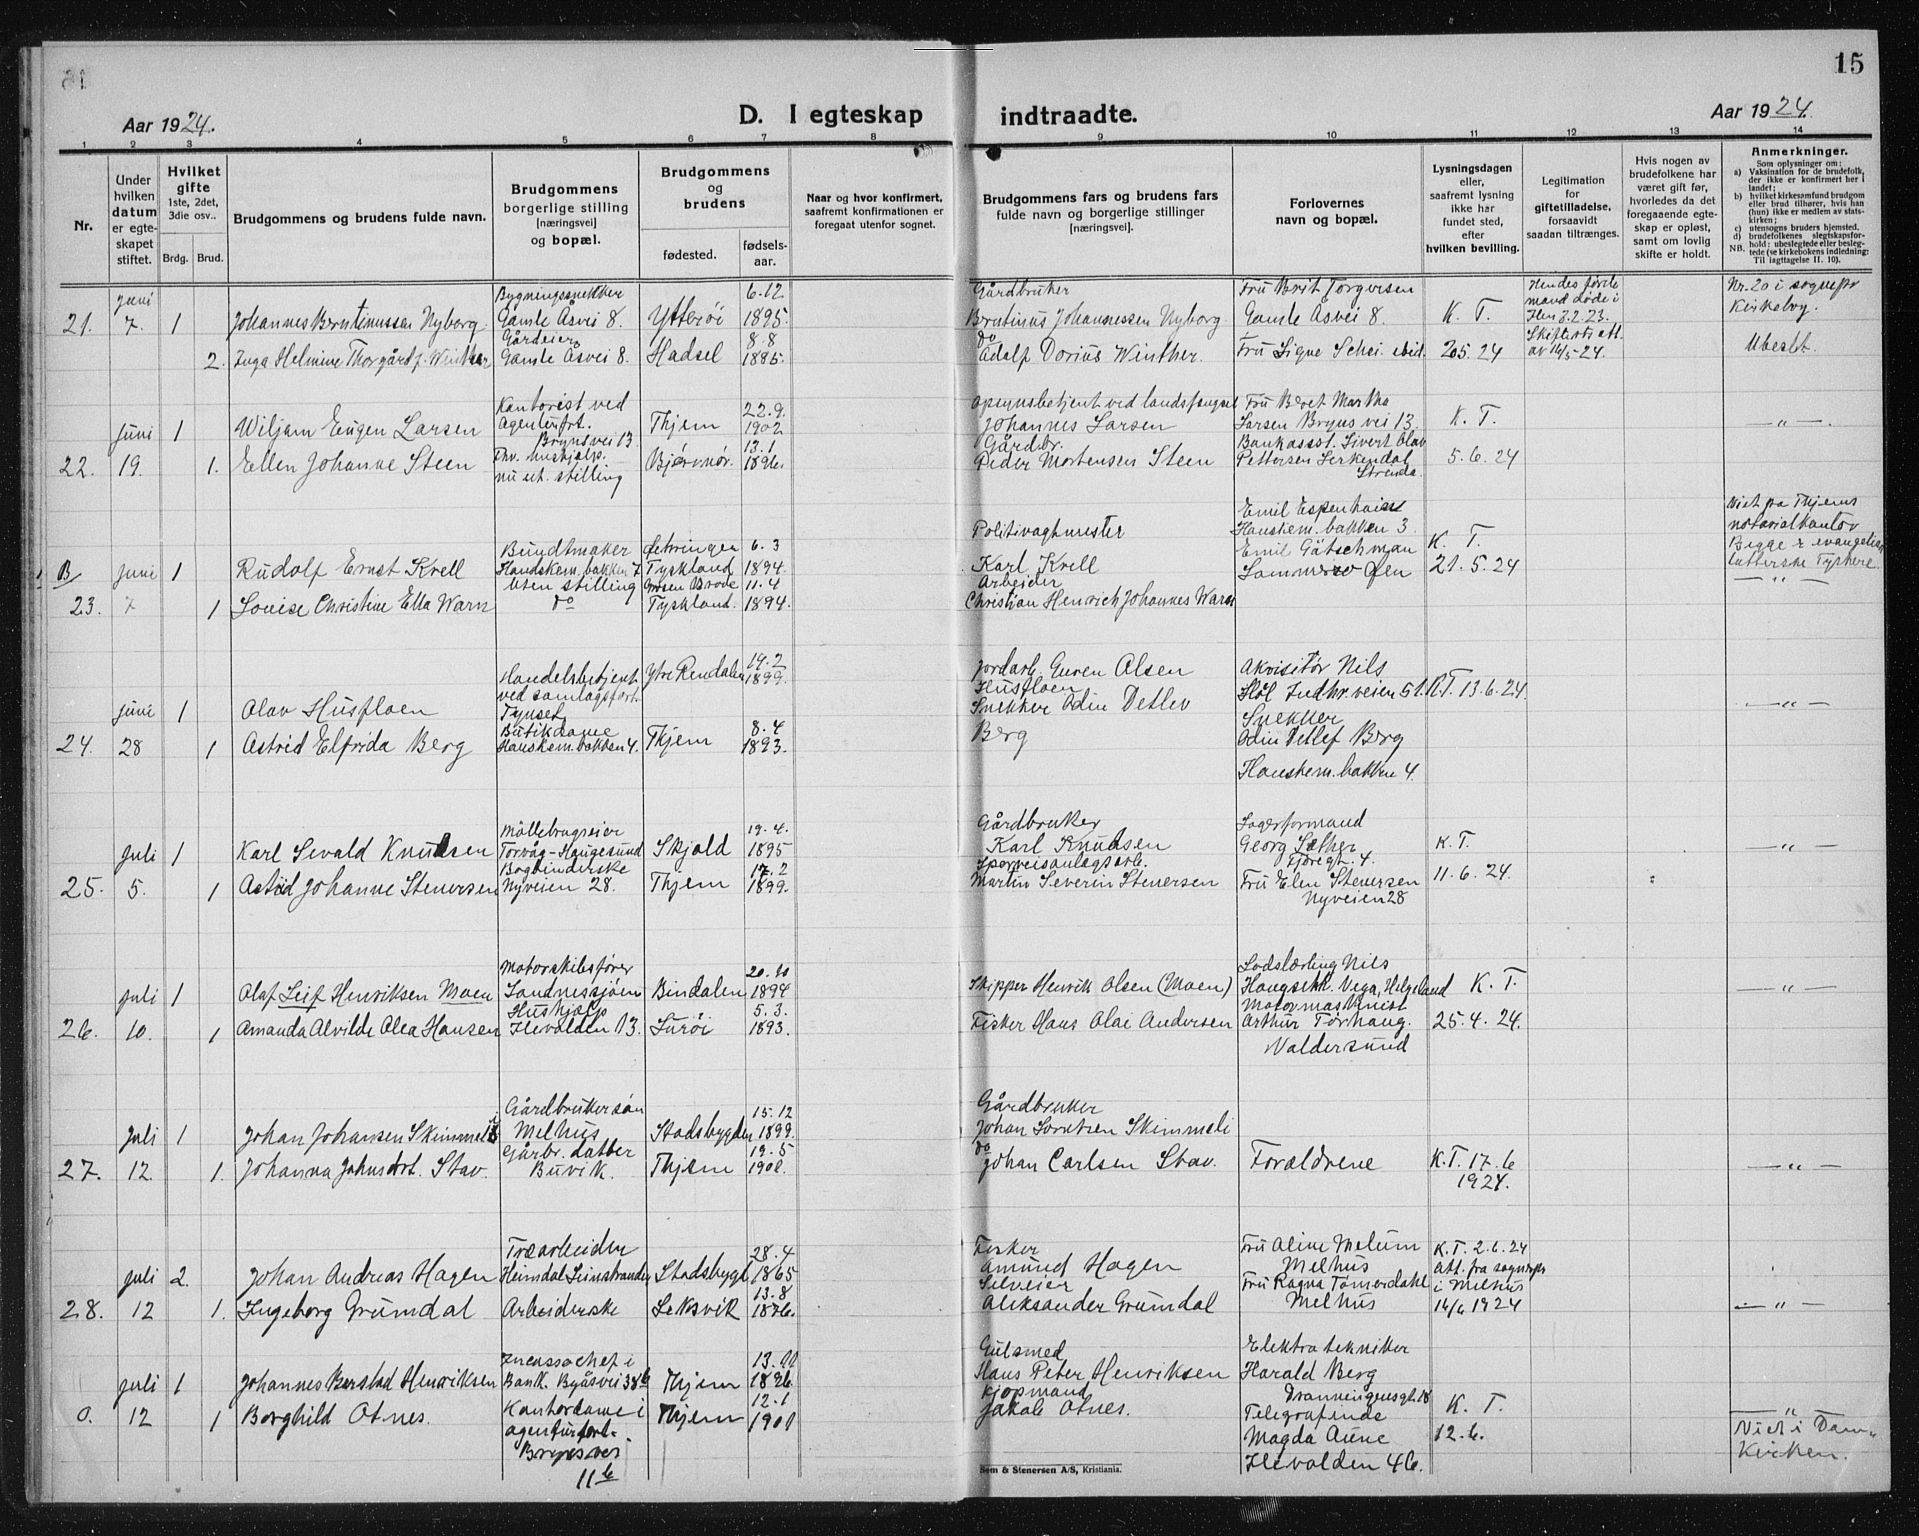 15
Aar 1924.
D. I egteskap indtraadte.
Aar 1924.
1 2 3 4 5 6 7 8 9 10 11 12 13 14
Nr.
Under hvilken datum er egte-skapet stiftet.
Hvilket gifte 1ste, 2det, 3die osv..
Brdg. Brud.
Brudgommens og brudens fulde navn.
Brudgommens borgerlige stilling [næringsvei] og bopæl.
Brudgommens og brudens
fødested.
fødsels-aar.
Naar og hvor konfirmert, saafremt konfirmationen er foregaat utenfor sognet.
Brudgommens fars og brudens fars fulde navn og borgerlige stillinger [næringsvei].
Forlovernes navn og bopæl.
Lysningsdagen eller, saafremt lysning ikke har fundet sted, efter hvilken bevilling.
Legitimation for giftetilladelse, forsaavidt saadan tiltrænges.
Hvis nogen av brudefolkene har været gift før, hvorledes da det foregaaende egte-skap er opløst, samt om lovlig skifte er holdt.
Anmerkninger.
Som oplysninger om:
a) Vaksination for de brudefolk, der ikke er konfirmert her i landet;
b) hvilket kirkesamfund brudgom eller brud tilhører, hvis han (hun) ikke er medlem av stats-kirken;
c) utensogns bruders hjemsted.
d) brudefolkenes slegtskapsfor-hold: ubeslegtede eller besleg-tede (se kirkebokens indledning:
NB. Til iagttagelse II. 10).
21. juni 7. 1
Johannes Berntinussen Nyborg.
Bygningssnekker
Gamle Åsvei 8.
Ytterøi
6.12
1895.
Gårdbruker
Berntinus Johannessen Nyborg
Fru Brit Torgersen
Gamle Åsvei 8
K. T.
Hendes første mand døde i
3.2.23.
Nr. 20 i sognepr
Kirkebog.
2. Inga Helmine Thorgård f. Winther
Gårdeier
Gamle Åsvei 8.
Hadsel
8.8
1885.
do
Adolf Dorius Winther.
Fru Signe Schei ibid.
205.24
Skifterets att.
av 16/5-24.
Ubesl.
22. juni 19. 1
Wiljam Eugen Larsen
Kontorist ved
Agenterfort.
Brynsvei 13
Thjem
22.9.
1902
Opsynsbetjent ved landsfengsel
Johannes Larsen
Fru Beret Martha
Larsen Bryns vei 13.
K. T.
— „ —
1. Ellen Johanne Steen
Fhv. hushjelp.
nu ut. stilling
Bjørnør.
13.1
1896.
Gårdbr.
Peder Mortensen Steen
Bankasst. Sivert Olav
Pettersen Lerkendal
Strinda
5.6.24
23. juni 7 1
Rudolf Ernst Krell
Bundtmaker
Hanskem. bakken 7
Tyskland
6.3
1894.
Politivagtmester
Karl Krell
Emil Espenhain
Hanskem. bakken 3
Emil Götschman
K. T.
21.5.24
Viet fra Thjems
notarialkontor
Begge er evangelisk
lutterske Tyskere.
— „ —
1 Louise Christine Ella Warn
Uten stilling
do
Grosen Brode
Tyskland.
11.4
1894.
Arbeider
Christian Henrich Johannes Warn
24. juni 28 1
Olav Husfloen
Handelsbetjent
ved samlagsfort.
Tynset
Ytre Rendalen
14.2
1899.
Jordarb. Olsen
Husfloen
Akvisitør Nils
Høl Indhr. veien 51.
K.T. 13.6.24.
— „ —
1 Astrid Elfrida Berg
Butikdame
Hanskem. bakken 4.
Thjem
8.4
1893.
Snekker Odin Detlev
Berg
Snekker
Odin Detlef Berg
Hanskem. bakken 4.
25. juli 5. 1
Karl Sevald Knudsen
Møllebrugseier
Torvåg-Haugesund
Skjold
19.4.
1895
Gårdbruker
Karl Knudsen
Lagerformand
Georg Sæther
K. T.
— „ —
1 Astrid Johanne Stenersen
Bogbinderske
Nyveien 28.
Thjem
17.2
1899.
Sporveisanlægsarb.
Martin Severin Stenersen
Fru Elen Stenersen
Nyveien 28
11.6.24.
26. juli 10. 1
Olaf Leif Henriksen Moen
Motorskibsfører
Sandnessjøen
Bindalen
20.10
1894
Skipper Henrik Olsen (Moen)
Lodslærling Nils
Vega, Helgeland
K. T.
— „ —
1 Amanda Alvilde Olea Hansen
Hushjelp
Ilevolden 13.
Surøi
5.3.
1893.
Fisker Hans Olai Andersen
Motormaskinist
Arthur Torhaug.
Valdersund
25.4.24.
27. juli 12. 1
Johan Johansen Skimmeli
Gårdbrukersøn
Melhus
Stadsbygden
15.12
1899.
Gårdbruker
Johan Skimmeli
1. Johanna Johnsdot. Stav.
Gårbr. datter
Buvik.
Thjem
19.5
do
Johan Carlsen Stav.
Forældrene
K.T. 17.6
1924.
— „ —
28. juli 12 2.
Johan Andreas Hagen
Træarbeider
Heimdal Leinstranden
Stadsbygd
28.4
1865
Fisker
Amund Hagen
Fru Aline Melum
Melhus
K.T. 2.6.24
att. fra sognepr
i Melhus
14/6 1924
1. Ingeborg Grumdal
Arbeiderske
Leksvik
13.8
1876.
Selveier
Aleksander Grumdal
Fru Ragna Tømerdahl
Melhus
— „ —
0. juli 12 1
Johannes Berstad Henriksen
Incassochef i
Bank. Byåsvei 38b
Thjem
13.11
1896.
Gulsmed
Hans Peter Henriksen
Elektrotekniker
Harald Berg
Dronningensgt. 18
K. T.
12.6.
1 Borghild Otnes.
Kontordame i
agenturfort.
Brynsvei
11b
Thjem
12.1
1901
Kjøpmand
Jakob Otnes.
Telegrafinde
Magda Aune
Ilevolden 46.
— „ —
Viet i Dom-
Kirken.
Sem & Stenersen A/S, Kristiania.